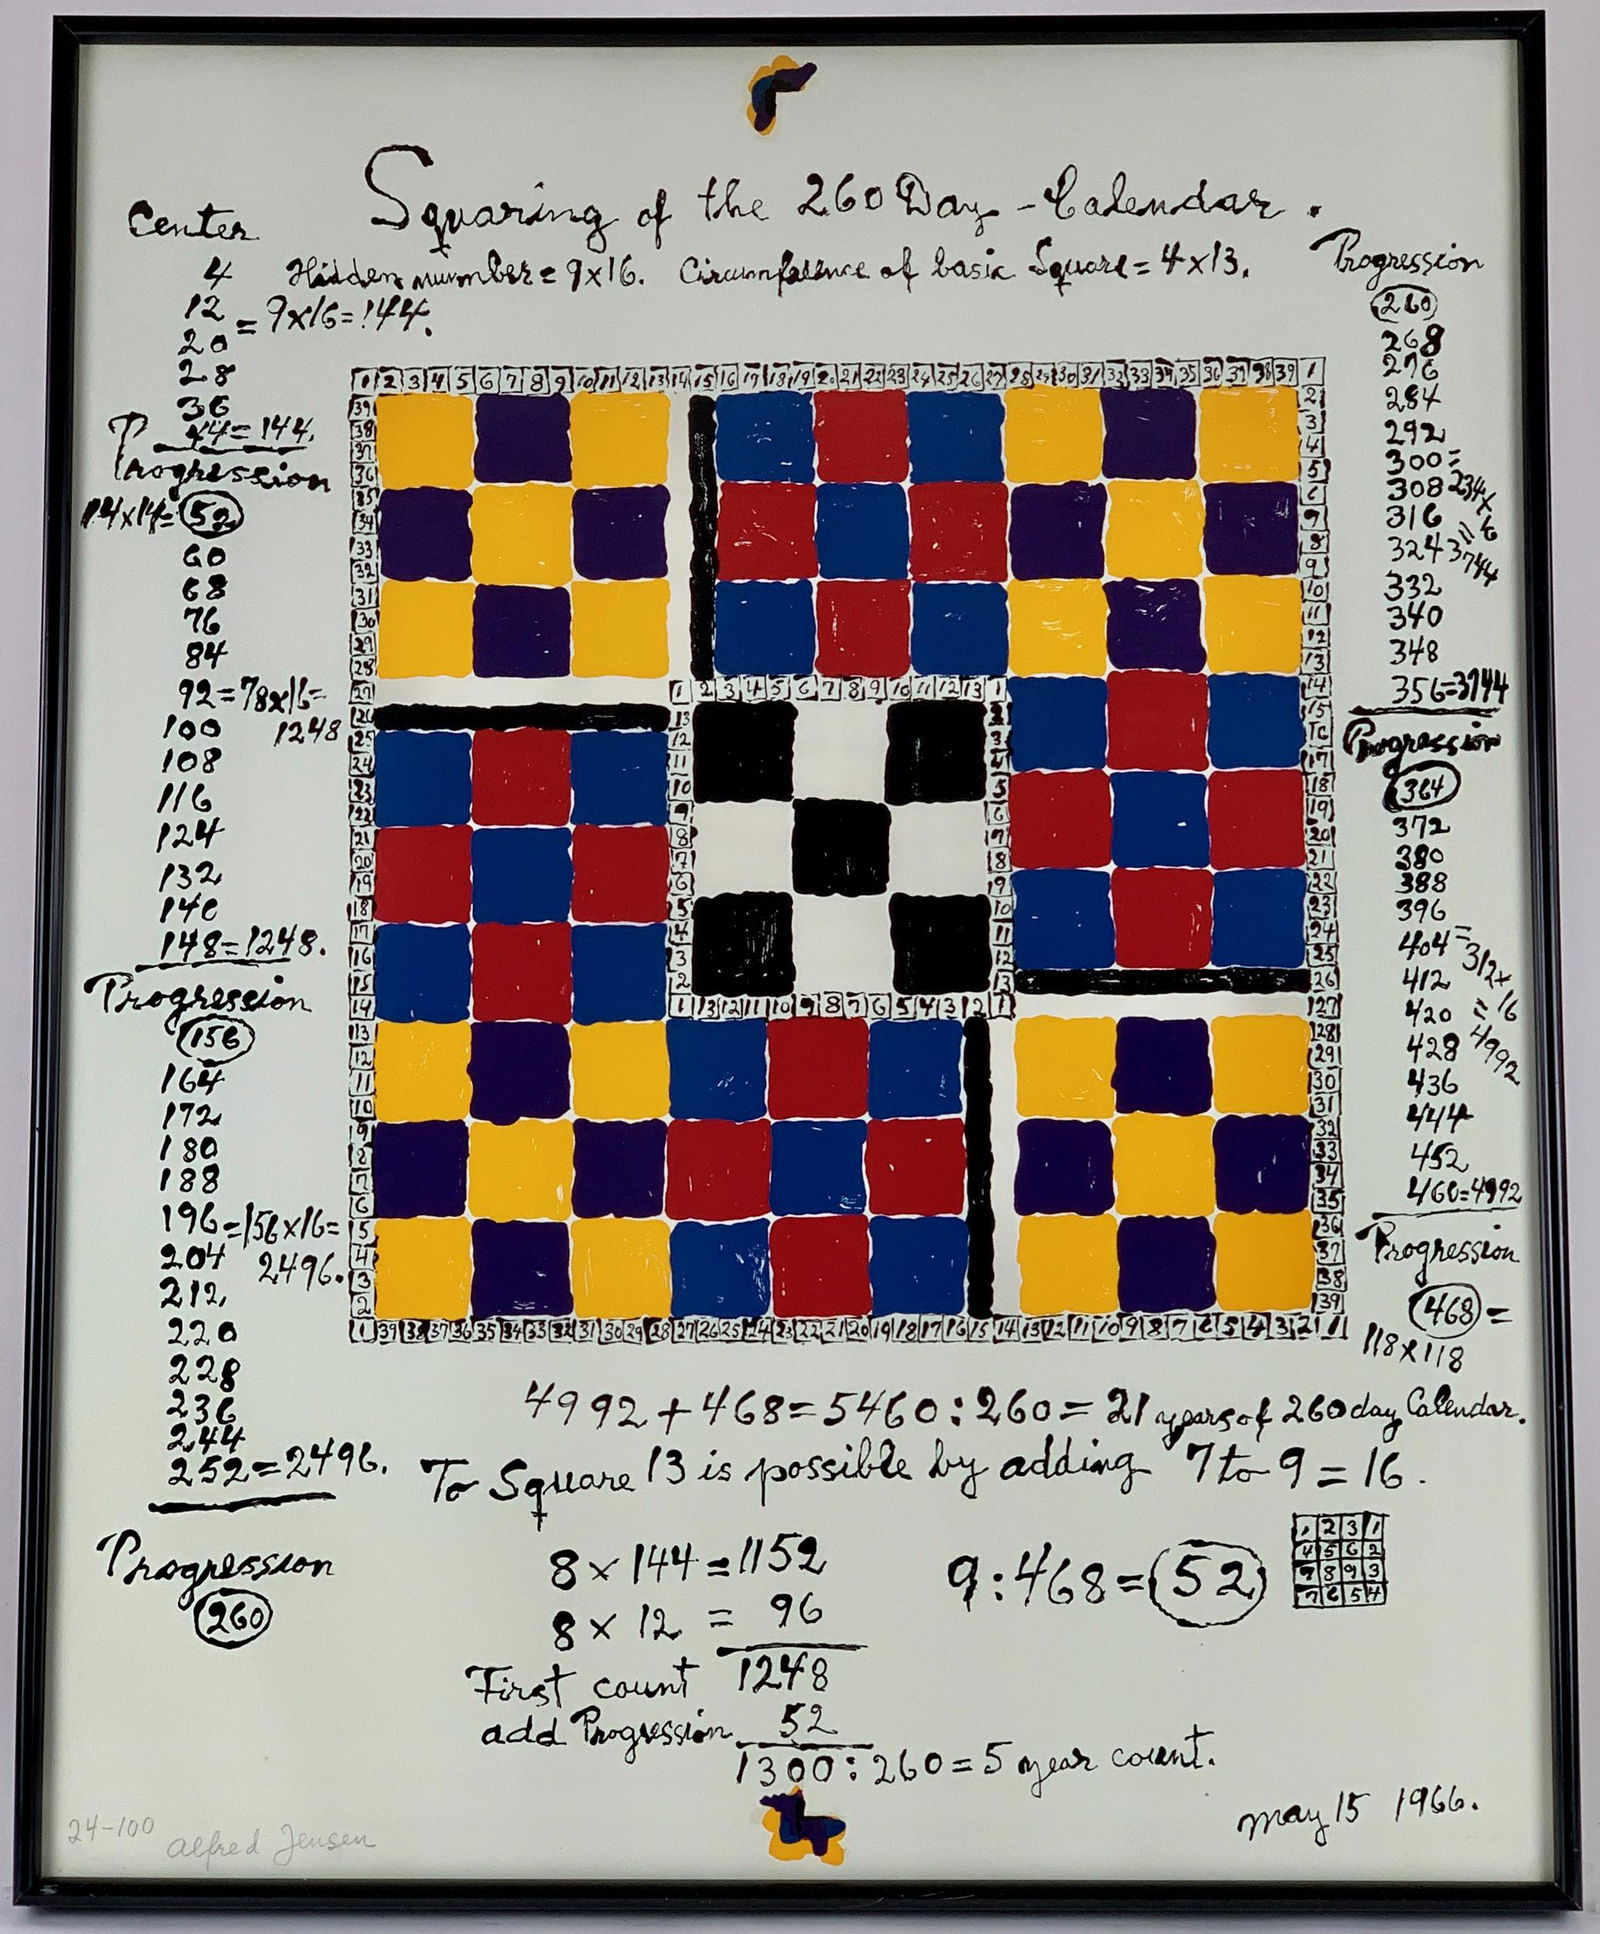 Squaring of the 260 Day - Calendar.
Hidden number = 9x16. Circumference of basic Square = 4x13.
Center
4
12
20 = 9x16=144.
28
36
44=144.
Progression
14x14= 52
60
68
76
84
92=78x16=
1248
100
108
116
124
132
140
148=1248.
Progression
156
164
172
180
188
196=156x16=
2496.
204
212
220
228
236
244
252=2496.
Progression
260
Progression
260
268
276
284
292
300=
234x
16
=
3744
308
316
324
332
340
348
356=3744
Progression
364
372
380
388
396
404=
312x
16
=
4992
412
420
428
436
444
452
460=4992
Progression
468=
118x118
1 2 3 4 5 6 7 8 9 10 11 12 13 14 15 16 17 18 19 20 21 22 23 24 25 26 27 28 29 30 31 32 33 34 35 36 37 38 39 1
39 38 37 36 35 34 33 32 31 30 29 28 27 26 25 24 23 22 21 20 19 18 17 16 15 14 13 12 11 10 9 8 7 6 5 4 3 2
2 3 4 5 6 7 8 9 10 11 12 13 14 15 16 17 18 19 20 21 22 23 24 25 26 27 28 29 30 31 32 33 34 35 36 37 38 39
1 2 3 4 5 6 7 8 9 10 11 12 13 1
13 12 11 10 9 8 7 6 5 4 3 2
2 3 4 5 6 7 8 9 10 11 12 13
1 13 12 11 10 9 8 7 6 5 4 3 2 1
1 39 38 37 36 35 34 33 32 31 30 29 28 27 26 25 24 23 22 21 20 19 18 17 16 15 14 13 12 11 10 9 8 7 6 5 4 3 2 1
4992+468=5460:260=21 years of 260 day Calendar.
To Square 13 is possible by adding 7 to 9 = 16.
8 x 144 = 1152
8 x 12 = 96
First count 1248
add Progression 52
1300:260=5 year count.
9:468=52
1 2 3 1
4 5 6 2
7 8 9 3
7 6 5 4
may 15 1966.
24-100 Alfred Jensen